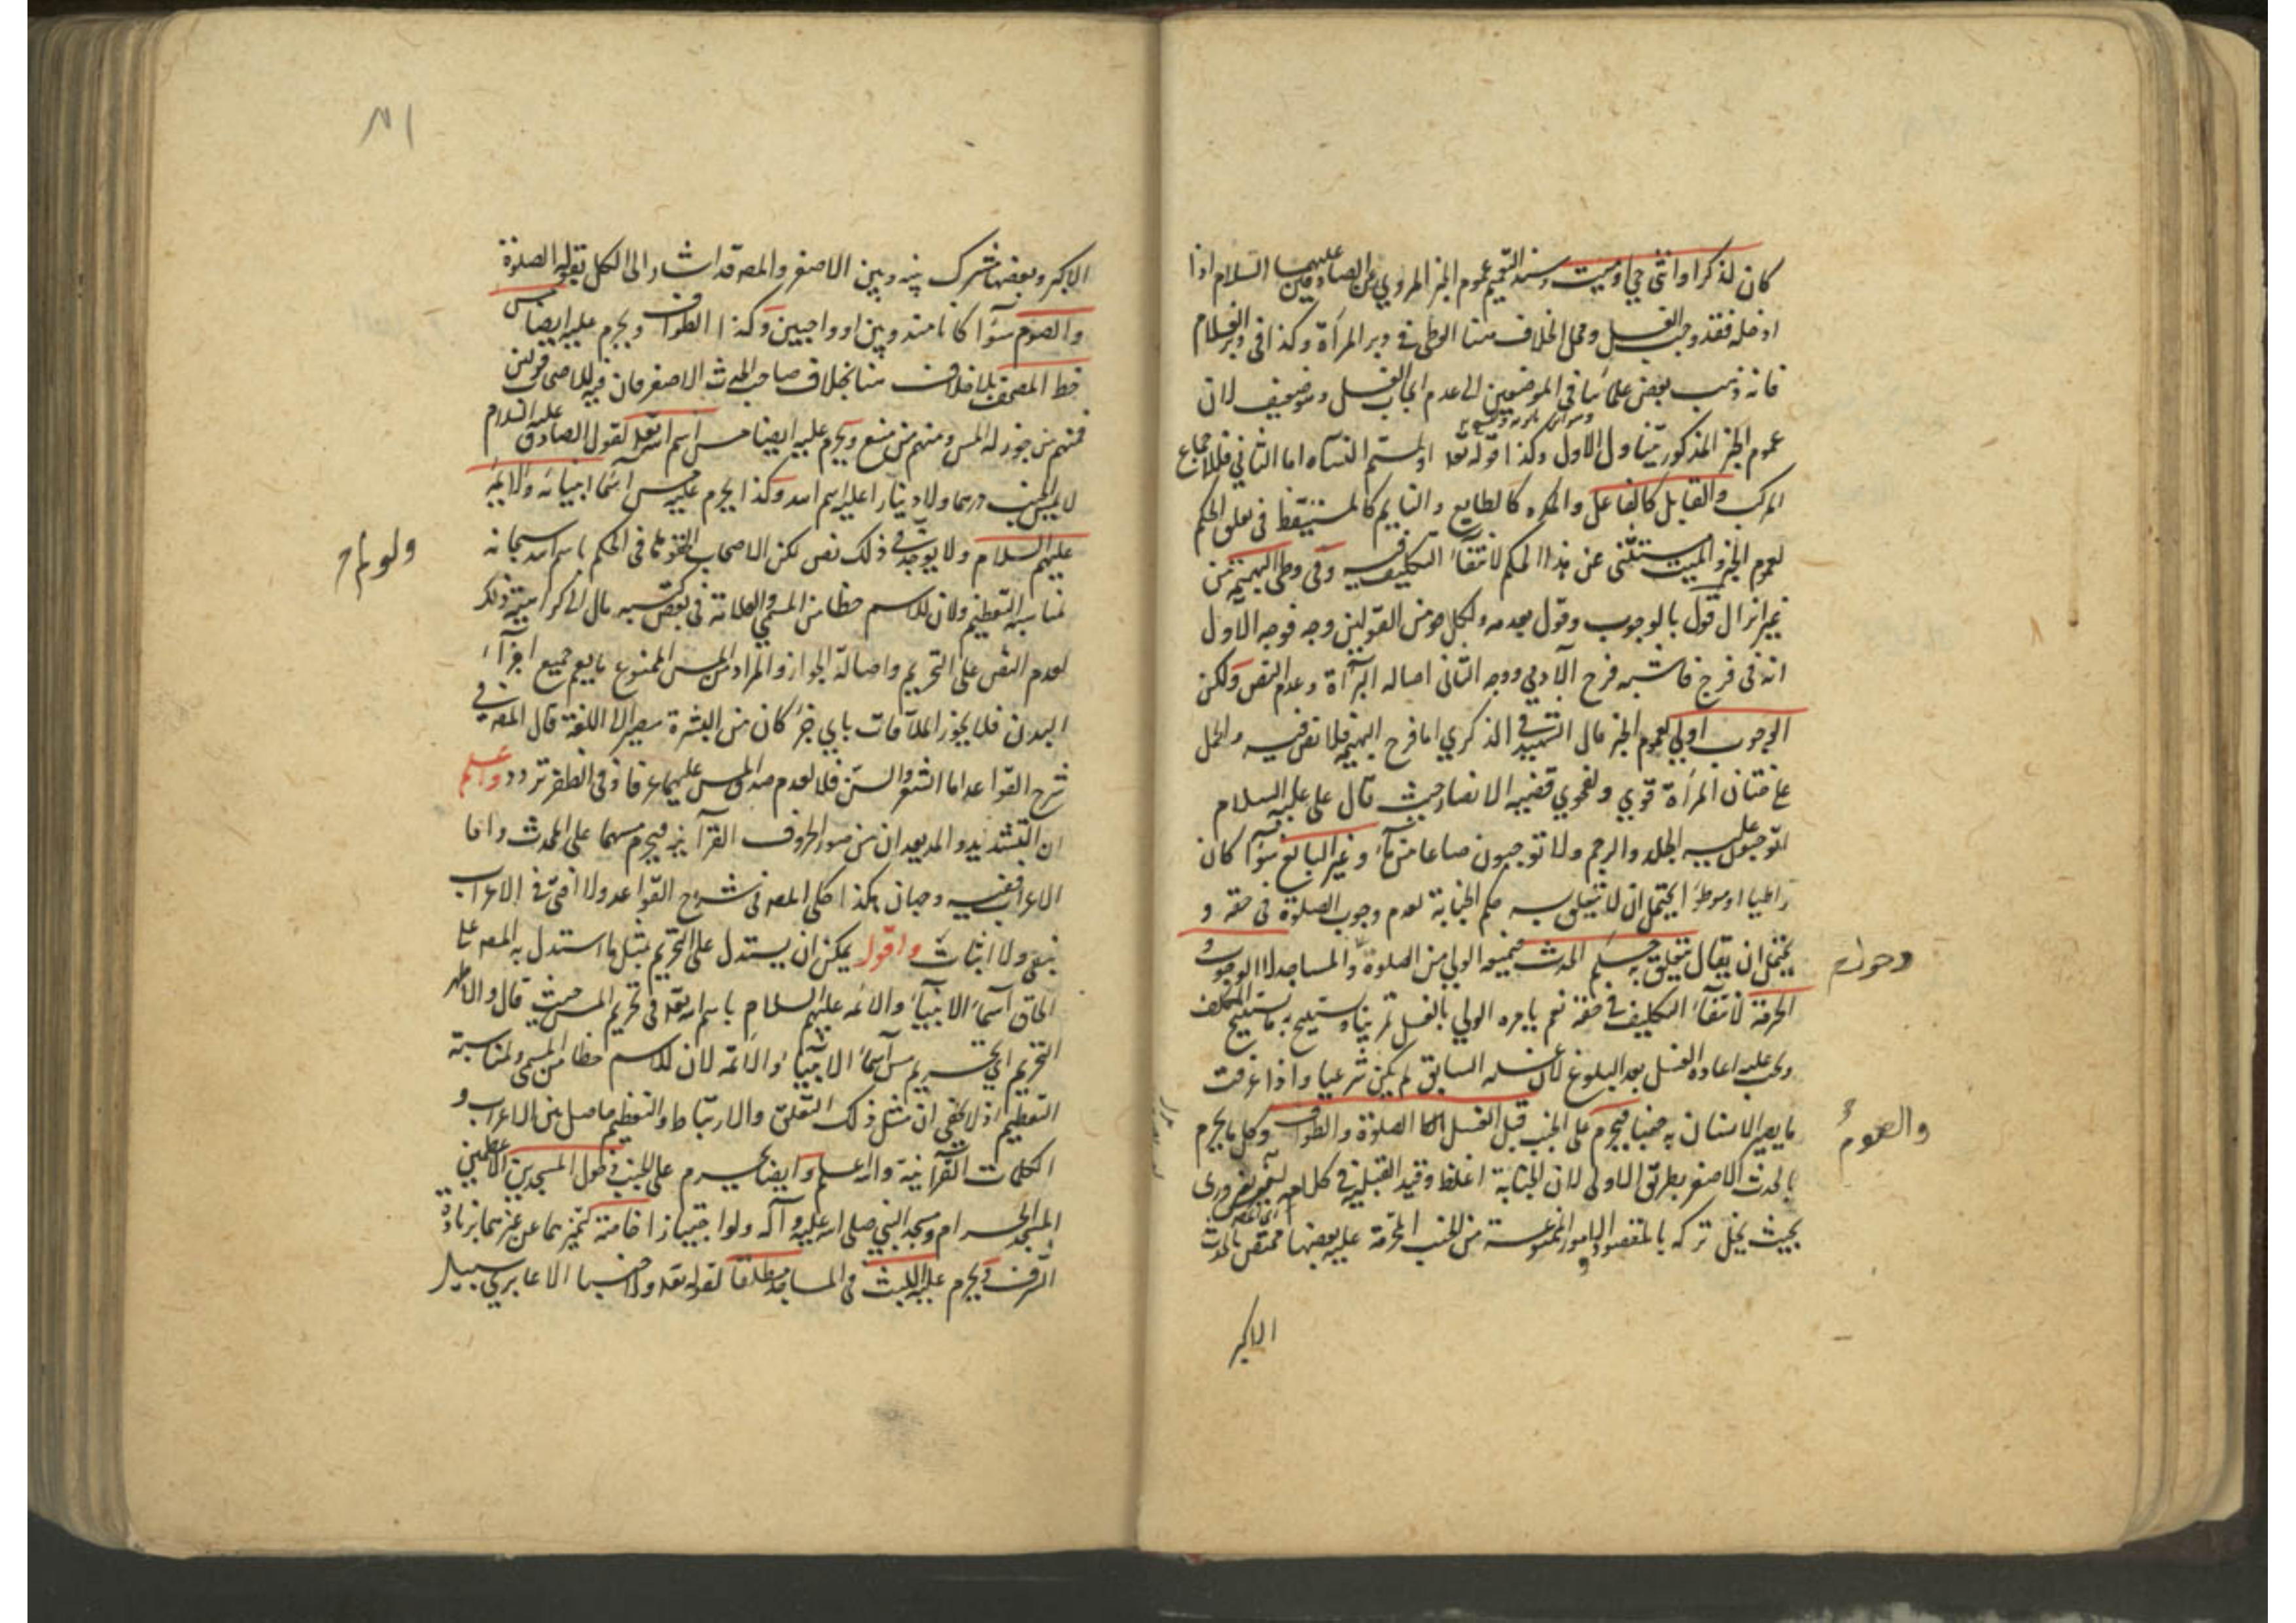 كان لذكر او انثى حي او ميت وسند التعميم عموم الخبر المروي عن الصادقين عليهما السلام اذا
ادخله فقد وجب الغسل ومحل الخلاف هنا الوطى في دبر المرأة وكذا في دبر الغلام
فانه ذهب بعض علمائنا في الموضعين الى عدم ايجاب الغسل وهو ضعيف لان
عموم الخبر المذكور يتناول الاول وكذا قوله تعا او لمستم النساء اما الثاني فللاجماع
المركب والقابل كالفاعل والمكره كالطايع والنايم كالمستيقظ في تعلق الحكم
لعموم الخبر والميت مستثنى عن هذا الحكم لانتفاء التكليف فيه وفي وطى البهيمة من
غير انزال قول بالوجوب وقول بعدمه ولكل من القولين وجه فوجه الاول
انه في فرج فاشبه فرج الآدمي ووجه الثاني اصاله البرآءة وعدم النص ولكن
الوجوب اولى لعموم الخبر قال الشهيد في الذكري اما فرج البهيمة فلا نص فيه والحمل
على ختان المرأة قوي ولفحوي قضيه الانصار حيث قال علي عليه السلام
اتوجبون عليه الجلد والرجم ولا توجبون صاعا من مآء وغير البالغ سوآء كان
واطيا او موطؤا يحتمل ان لا يتعلق به حكم الجنابة لعدم وجوب الصلوة في حقه و
يحتمل ان يقال يتعلق به حكم الحدث فيمنعه الولي من الصلوة والمساجد لا الوجوب و
الحرمة لانتفاء التكليف في حقه نعم يامره الولي بالغسل تمرينا ويستبيح به ما يستبيح المكلف
ويجب عليه اعاده الغسل بعد البلوغ لان غسله السابق لم يكن شرعيا واذا عرفت
ما يصير الانسان به جنبا فيحرم على الجنب قبل الغسل الصلوة والطواف وكل ما يحرم
والصوم
بالحدث الاصغر بطريق الاولى لان الجنابة اغلظ وقيد القبلية في كلامه ضروري
بحيث يخل تركه بالمقصود والامور الممنوعة من الجنب المحرمة عليه بعضها مختص بالحدث
الاكبر
الاكبر وبعضها مشترك بينه وبين الاصغر والمص قد اشار الى الكل بقوله الصلوة
والصوم سوآء كانا مندوبين او واجبين وكذا الطواف ويحرم عليه ايضا مس
خط المصحف بلا خلاف هنا بخلاف صاحب الحدث الاصغر فان فيه للاصحاب قولين
فمنهم من جوز له المس ومنهم من منع ويحرم عليه ايضا مس اسم الله تعا لقول الصادق عليه السلام
لا يمس الجنب درهما ولا دينارا عليه اسم الله وكذا يحرم عليه مس اسماء انبيائه والائمة
عليهم السلام ولا يوجد في ذلك نص لكن الاصحاب الحقوها في الحكم باسم الله سبحانه
لمناسبة التعظيم ولان للاسم حظا من المسمي والعلامة في بعض كتبه مال الى كراهية ذلك
لعدم النص على التحريم واصالة الجواز والمراد من المس الممنوع ما يعم جميع اجزآء
البدن فلا يجوز الملاقات باي جزء كان من البشرة مصيرا الى اللغة قال المص في
شرح القواعد اما الشعر والسن فلا لعدم صدق المس عليهما عرفا وفي الظفر تردد واعلم
ان التشديد والمد يعدان من صور الحروف القرآنية فيحرم مسهما على المحدث واما
الاعراب ففيه وجهان هكذا حكى المص في شرح القواعد ولا افتى في الاعراب
بنفي ولا اثبات واقول يمكن ان يستدل على التحريم بمثل ما استدل به المص على
الحاق اسماء الانبيآء والائمه عليهم السلام باسم الله تعا في تحريم المس حيث قال والاظهر
التحريم اي تحريم مس اسماء الانبيآء والائمة لان للاسم حظا من المسمي ولمناسبة
التعظيم اذ لا يخفى ان مثل ذلك التعلق والارتباط والتعظيم حاصل بين الاعراب و
الكلمات القرآنية والله اعلم وايضا يحرم على الجنب دخول المسجدين الاعظمين
المسجد الحرام ومسجد النبي صلى الله عليه وآله ولو اجتيازا خاصة لتميزهما عن غيرهما بزيادة
الشرف ويحرم عليه اللبث في المساجد مطلقا لقوله تعا ولا جنبا الا عابري سبيل